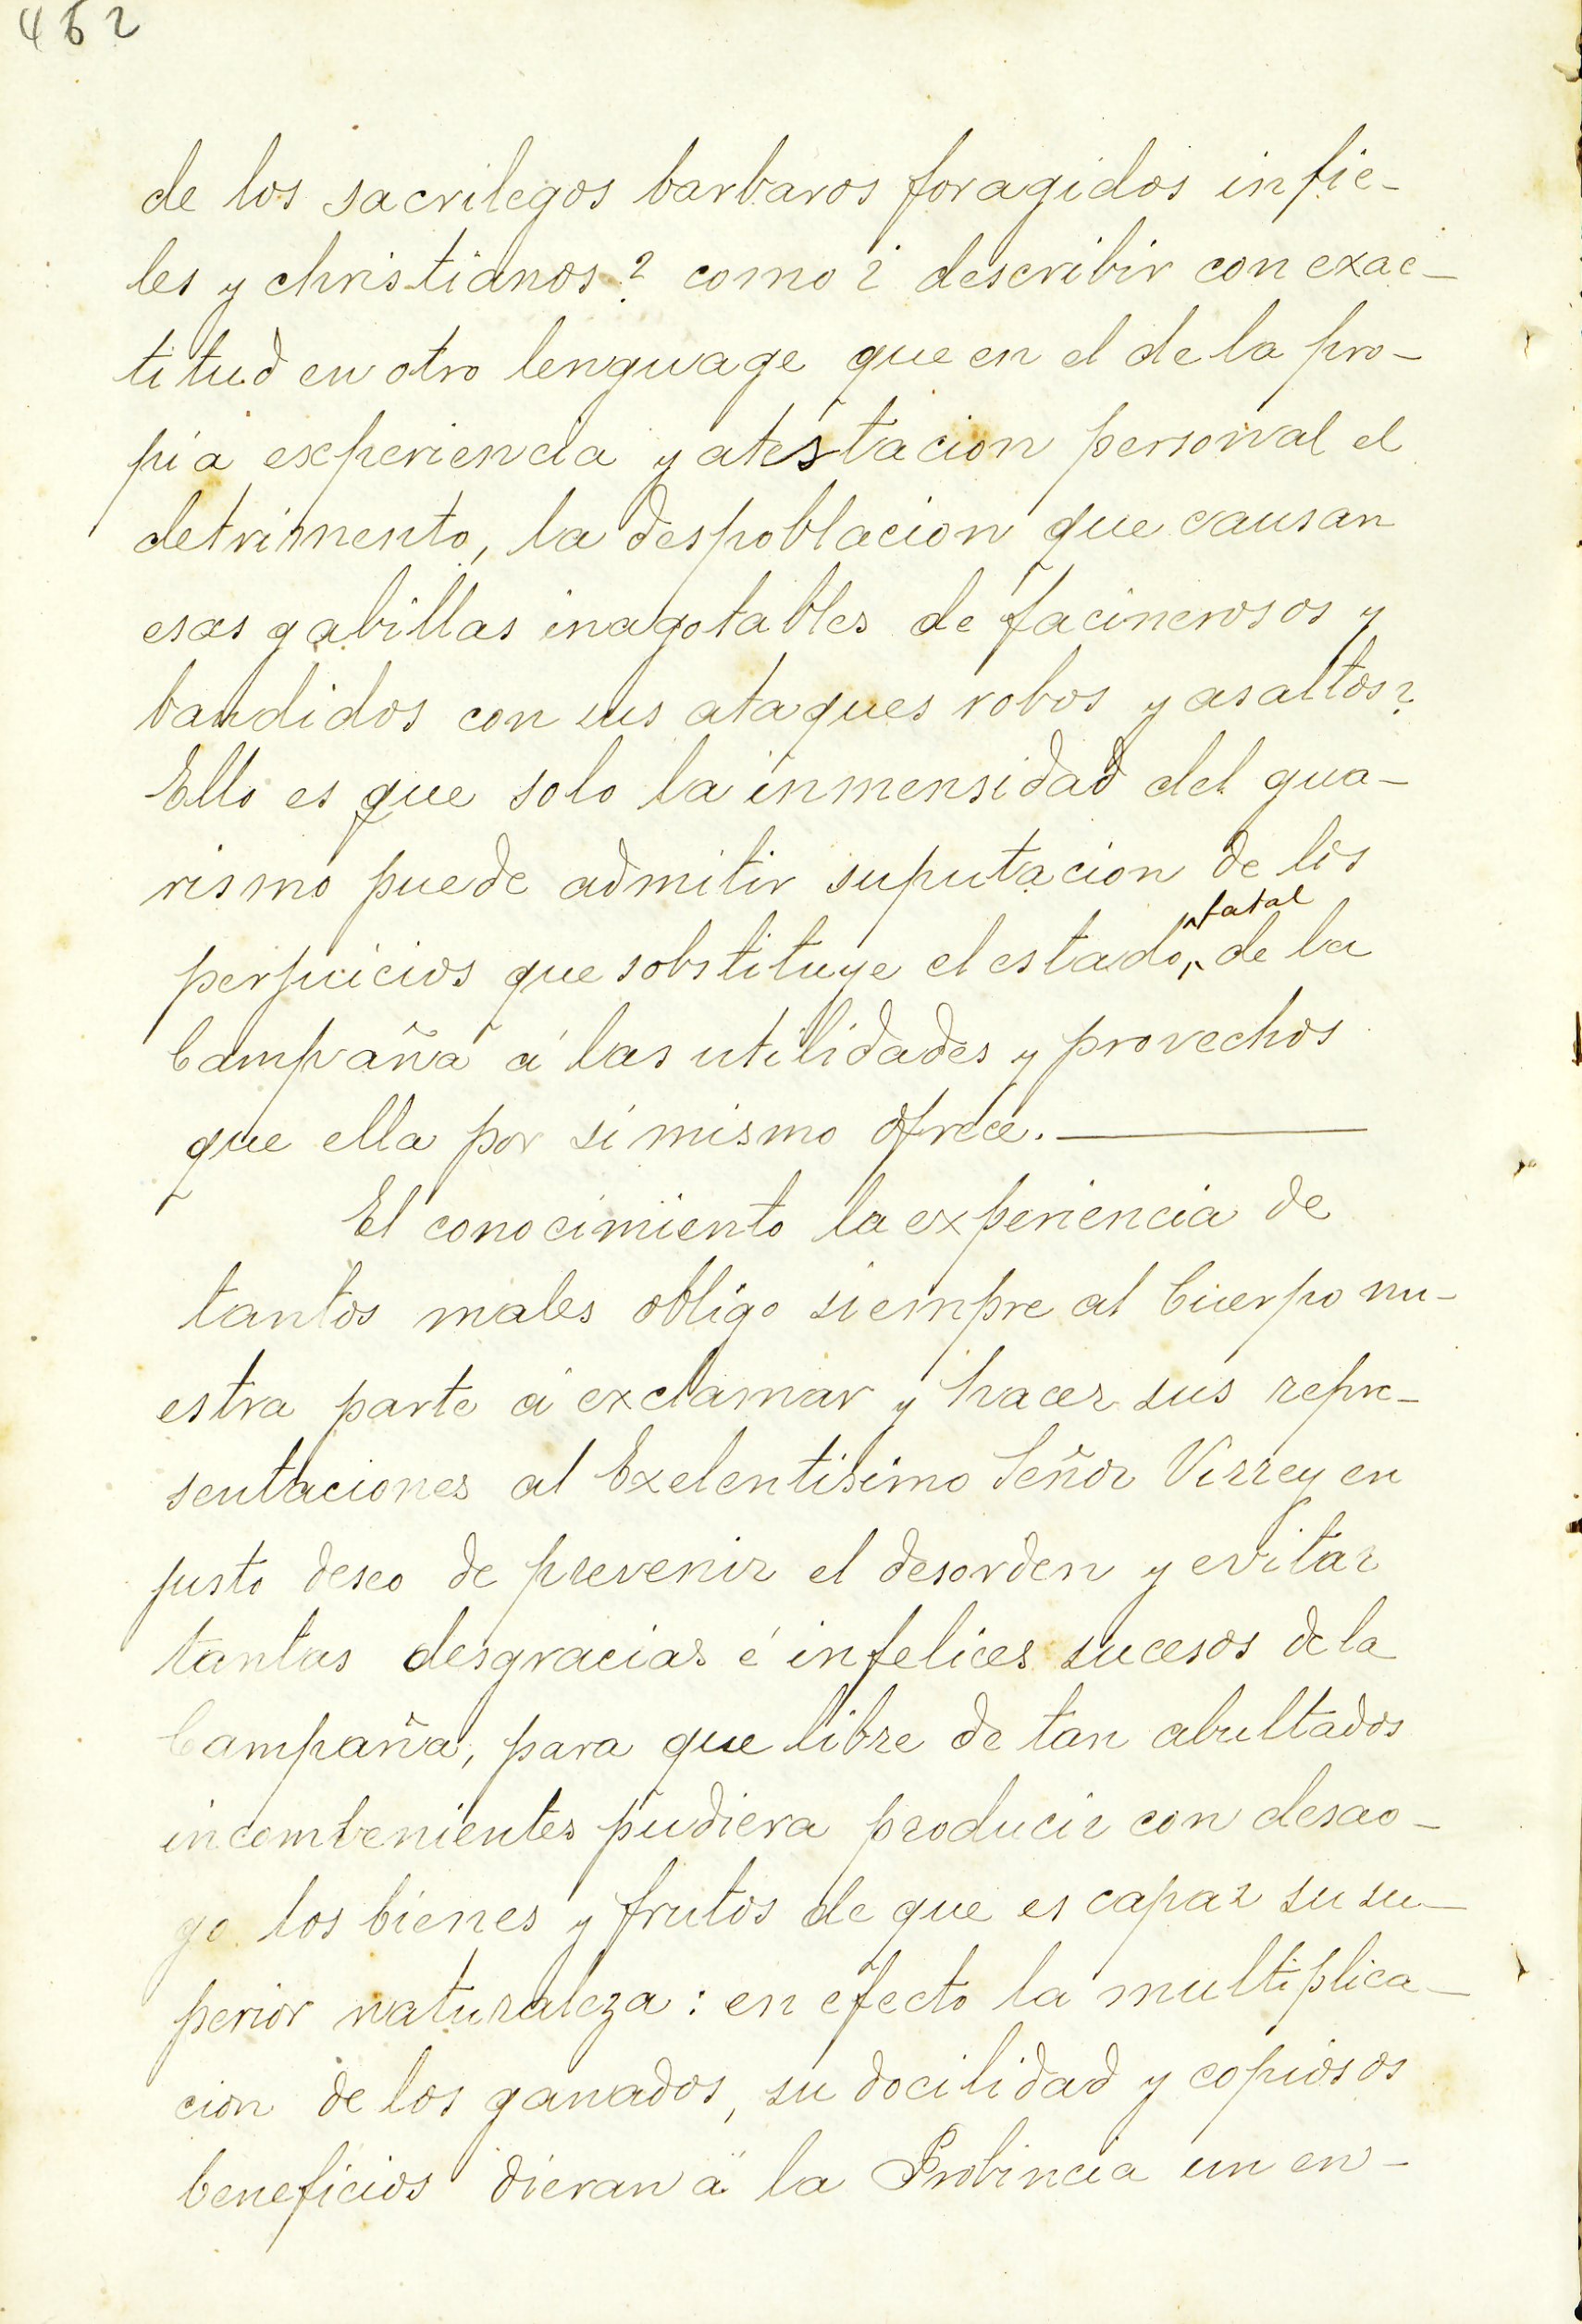 452
de los sacrilegos barbaros foragidos infie-
les y christianos? como ¿ describir con exac-
titud en otro lenguage que en el de la pro-
pia experiencia y atestacion personal el
detrimento, la despoblacion que causan
esas gabillas inagotables de facinerosos y
bandidos con sus ataques robos y asaltos?
Ello es que solo la inmensidad del gua-
rismo puede admitir suputacion de los
fatal
perjuicios que sobstituye el estado, de la
Campaña á las utilidades y provechos
que ella por si mismo ofrece.
El conocimiento la experiencia de
tantos males obligo siempre al Cuerpo nu-
estra parte á exclamar y hacer sus repre-
sentaciones al Exelentisimo Señor Virrey en
justo deseo de prevenir el desorden y evitar
tantas desgracias é infelices sucesos de la
Campaña, para que libre de tan abultados
incombenientes pudiera producir con desao-
go los bienes y frutos de que es capaz su su-
perior naturaleza: en efecto la multiplica-
cion de los ganados, su docilidad y copiosos
beneficios dieran á la Probincia un en-